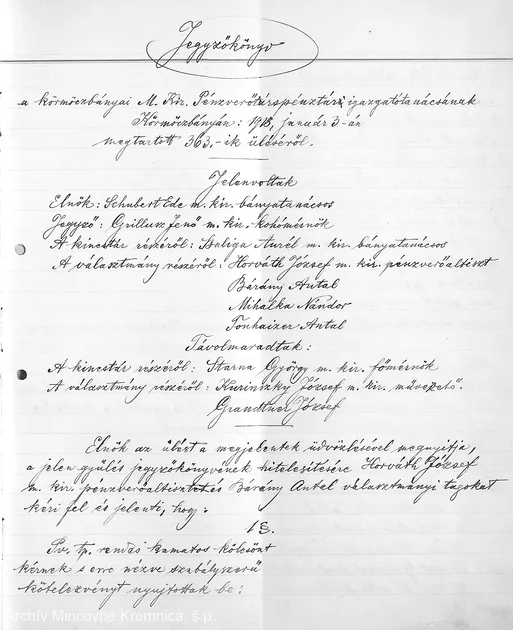 Jegyzőkönyv
a körmöczbányai M. Kir. Pénzverőtárspénztár igazgatótanácsának
Körmöczbányán: 1918, január 3-án
megtartott 363,-ik üléséről.
Jelenvoltak
Elnök: Schubert Ede m. kir. bányatanácsos
Jegyző: Grillusz Jenő m. kir. kohómérnök
A kincstár részéről: Szaliga Aurél m. kir. bányatanácsos
A választmány részéről: Horváth József m. kir. pénzverőaltiszt
Bárány Antal
Mihalka Nándor
Tonhaizer Antal
Távolmaradtak:
A kincstár részéről: Starna György m. kir. főmérnök
A választmány részéről: Kurinszky József m. kir. művezető.
Grandtner József
Elnök az ülést a megjelentek üdvözlésével megnyitja,
a jelen gyűlés jegyzőkönyvének hitelesítésére Horváth József
m. kir. pénzverőaltisztet és Bárány Antal választmányi tagokat
kéri fel és jelenti, hogy:
1 §.
Pv. tp. rendes kamatos kölcsönt
kérnek s erre nézve szabályszerű
kötelezvényt nyujtottak be:
Archív Mincovne Kremnica, š.p.